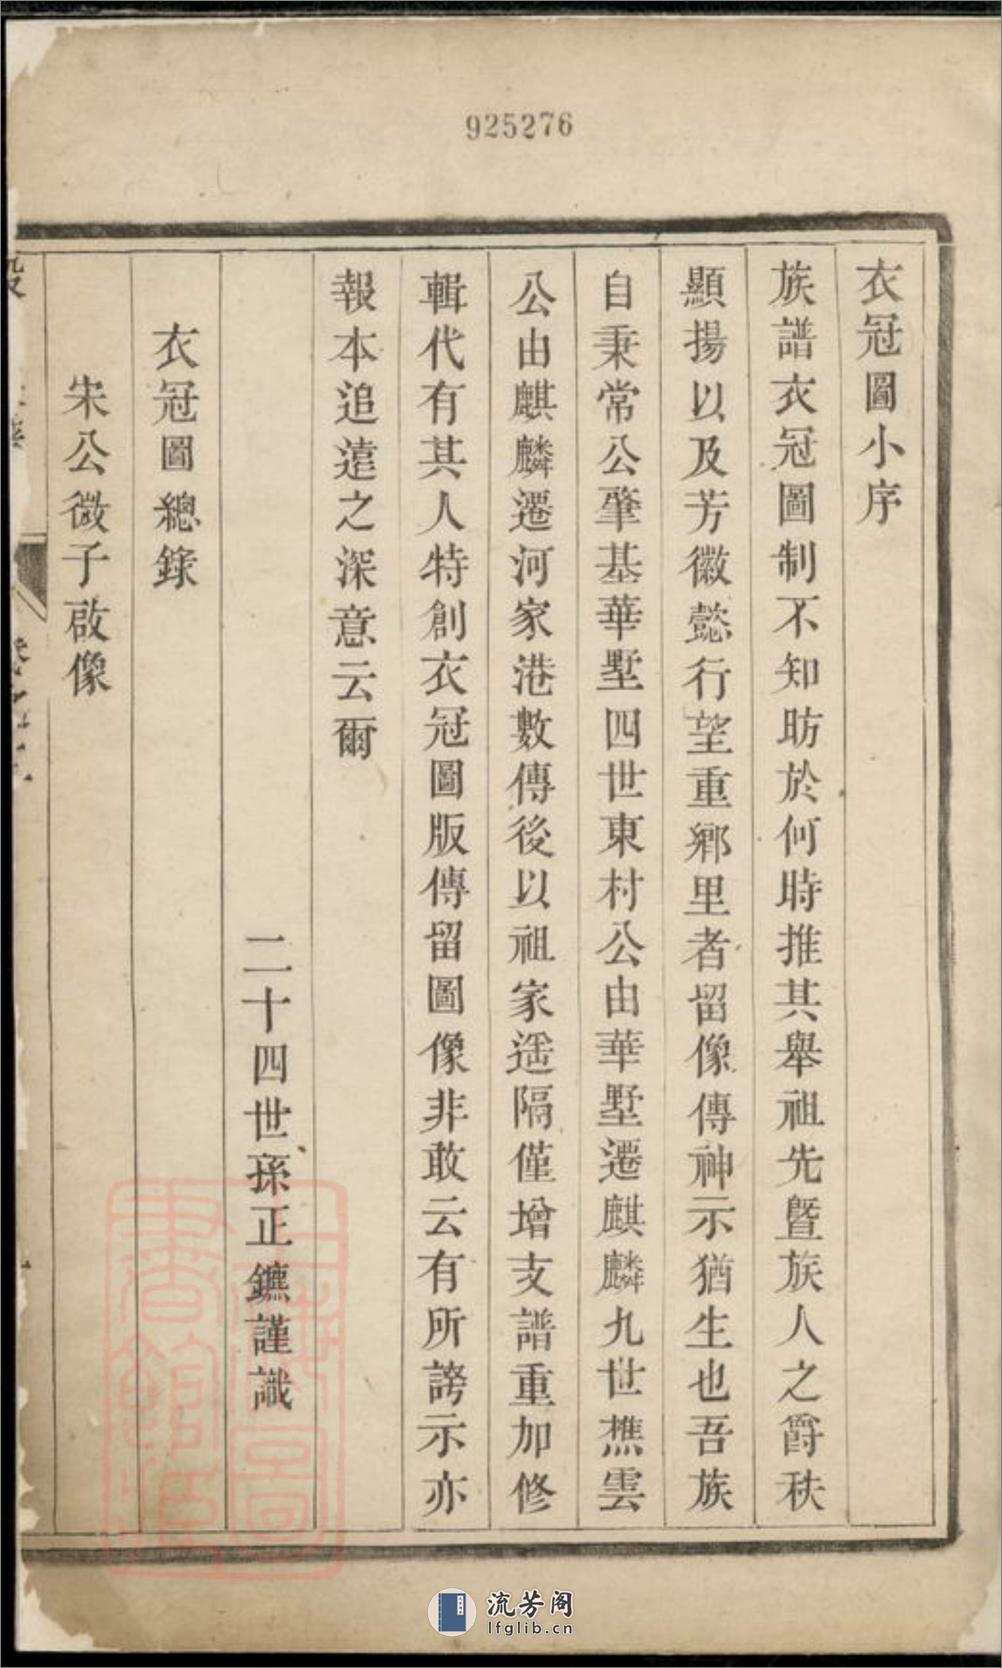 925276
衣冠圖小序
族譜衣冠圖制不知昉於何時推其舉祖先暨族人之爵秩
顯揚以及芳徽懿行望重鄉里者留像傳神示猶生也吾族
自秉常公肇基華墅四世東村公由華墅遷麒麟九世樵雲
公由麒麟遷河家港數傳後以祖家遥隔僅增支譜重加修
輯代有其人特創衣冠圖版傳留圖像非敢云有所誇示亦
報本追遠之深意云爾
二十四世孫正鑣謹識
衣冠圖總錄
宋公微子啟像
上海圖書館藏
流芳阁
lfglib.cn